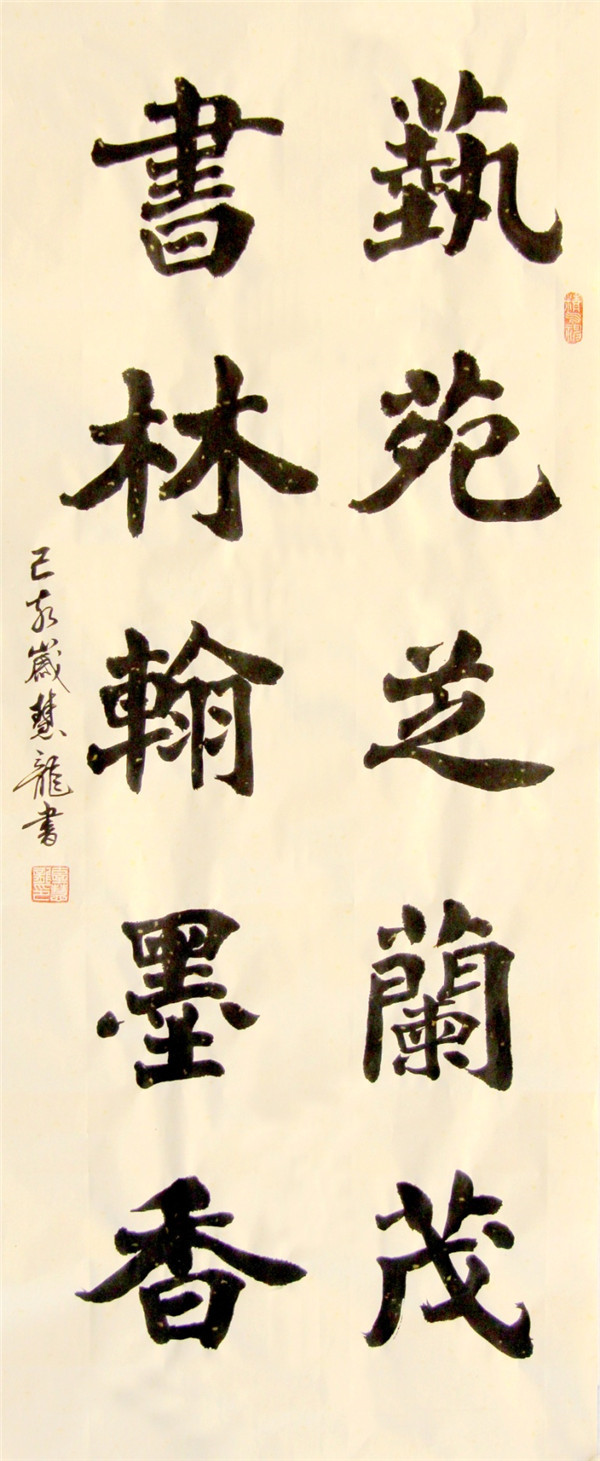 藝苑芝蘭茂
書林翰墨香
己亥歲慧龍書